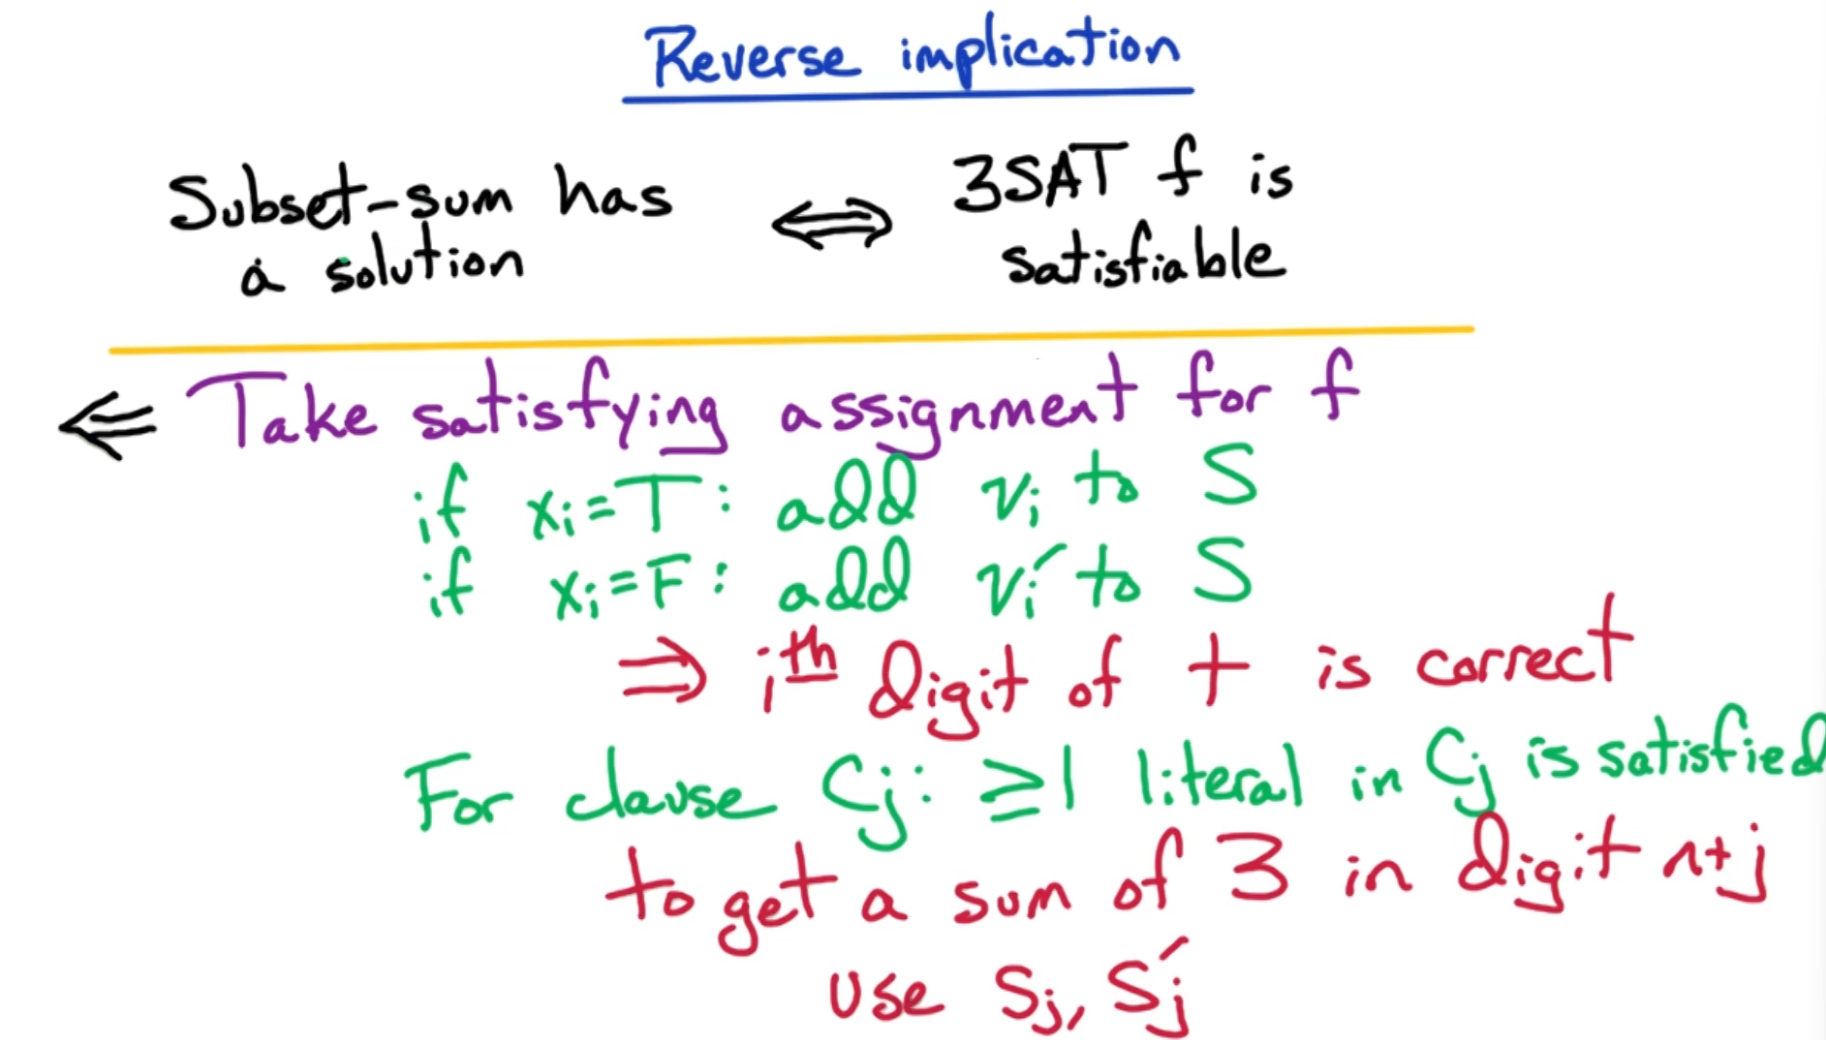 Reverse implication
Subset-sum has ⟺ 3SAT f is
a solution satisfiable
⇐ Take satisfying assignment for f
if xᵢ=T: add vᵢ to S
if xᵢ=F: add vᵢ′ to S
⇒ iᵗʰ digit of t is correct
For clause Cⱼ: ≥1 literal in Cⱼ is satisfied
to get a sum of 3 in digit n+j
use Sⱼ, Sⱼ′